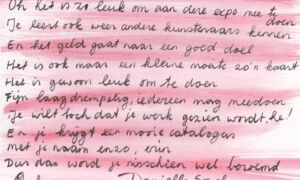 Och het is zo leuk om aan deze expo mee te doen
Je leert ook weer andere kunstenaars kennen
En het geld gaat naar een goed doel
Het is ook maar een kleine moeite zo'n kaart
Het is gewoon leuk om te doen
Fijn laagdrempelig, iedereen mag meedoen
Je wilt toch dat je werk gezien wordt, hè!
En je krijgt een mooie catalogus
met je naam enzo, erin
Dus dan word je misschien wel beroemd